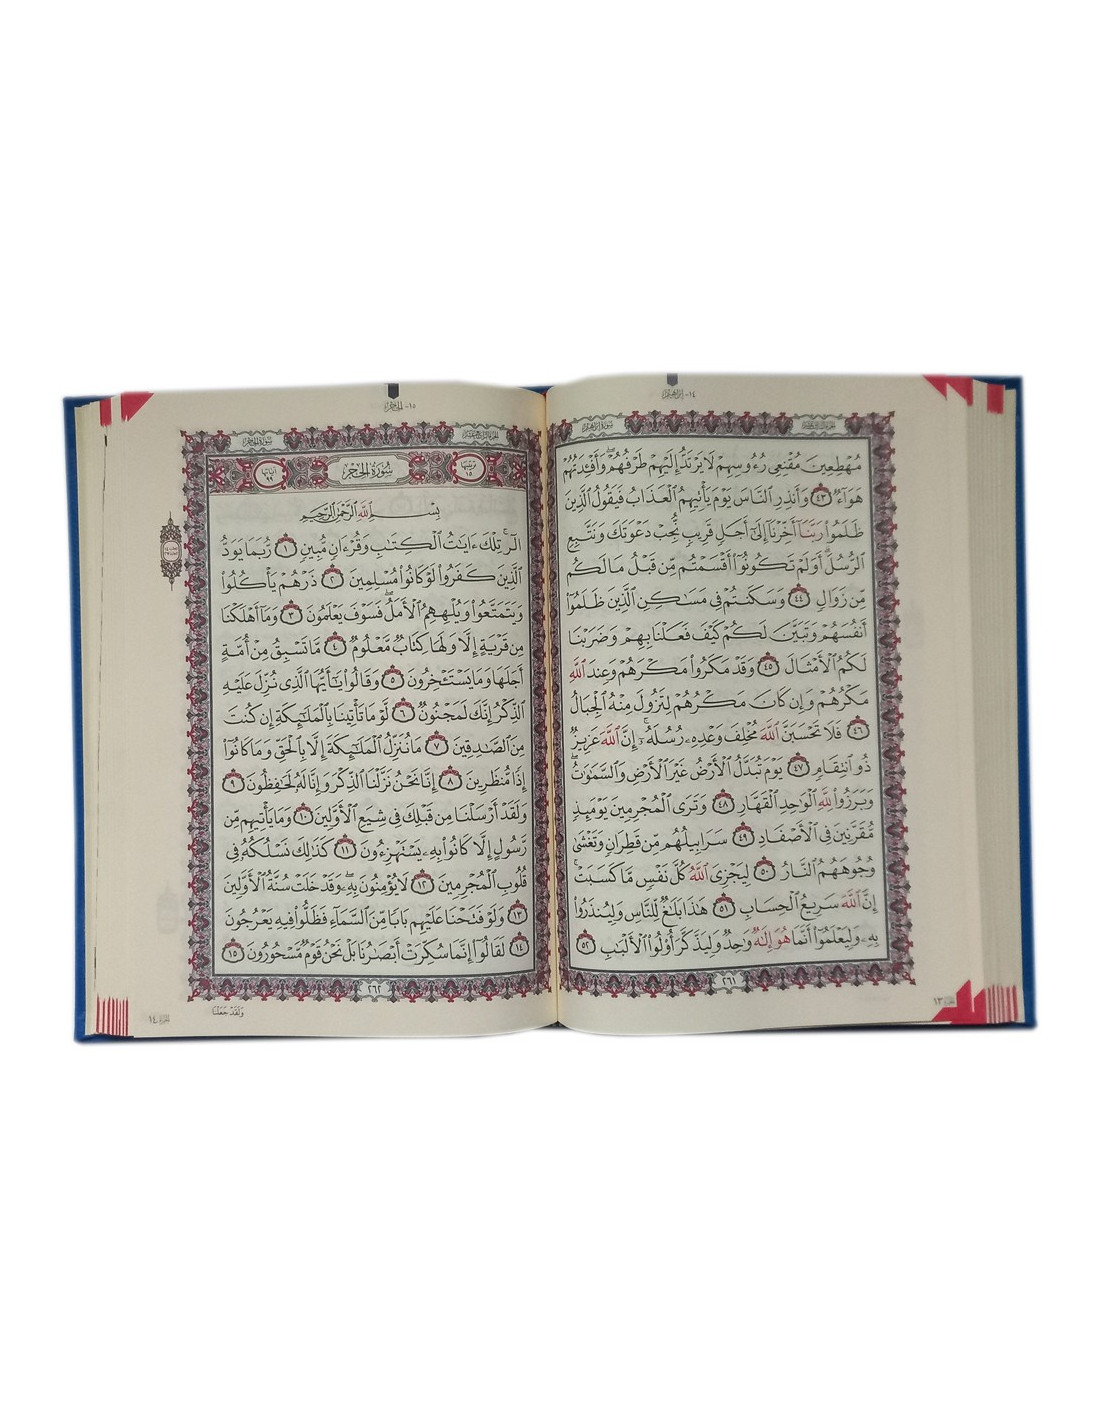 ١٤- إبراهيم
الجزء الثالث عشر سورة إبراهيم
مُهْطِعِينَ مُقْنِعِى رُءُوسِهِمْ لَا يَرْتَدُّ إِلَيْهِمْ طَرْفُهُمْ ۖ وَأَفْـِٔدَتُهُمْ
هَوَآءٌ ٤٣ وَأَنذِرِ ٱلنَّاسَ يَوْمَ يَأْتِيهِمُ ٱلْعَذَابُ فَيَقُولُ ٱلَّذِينَ
ظَلَمُوا۟ رَبَّنَآ أَخِّرْنَآ إِلَىٰٓ أَجَلٍ قَرِيبٍ نُّجِبْ دَعْوَتَكَ وَنَتَّبِعِ
ٱلرُّسُلَ ۗ أَوَلَمْ تَكُونُوٓا۟ أَقْسَمْتُم مِّن قَبْلُ مَا لَكُم
مِّن زَوَالٍ ٤٤ وَسَكَنتُمْ فِى مَسَـٰكِنِ ٱلَّذِينَ ظَلَمُوٓا۟
أَنفُسَهُمْ وَتَبَيَّنَ لَكُمْ كَيْفَ فَعَلْنَا بِهِمْ وَضَرَبْنَا
لَكُمُ ٱلْأَمْثَالَ ٤٥ وَقَدْ مَكَرُوا۟ مَكْرَهُمْ وَعِندَ ٱللَّهِ
مَكْرُهُمْ وَإِن كَانَ مَكْرُهُمْ لِتَزُولَ مِنْهُ ٱلْجِبَالُ
٤٦ فَلَا تَحْسَبَنَّ ٱللَّهَ مُخْلِفَ وَعْدِهِۦ رُسُلَهُۥٓ ۗ إِنَّ ٱللَّهَ عَزِيزٌ
ذُو ٱنتِقَامٍ ٤٧ يَوْمَ تُبَدَّلُ ٱلْأَرْضُ غَيْرَ ٱلْأَرْضِ وَٱلسَّمَـٰوَٰتُ ۖ
وَبَرَزُوا۟ لِلَّهِ ٱلْوَٰحِدِ ٱلْقَهَّارِ ٤٨ وَتَرَى ٱلْمُجْرِمِينَ يَوْمَئِذٍ
مُّقَرَّنِينَ فِى ٱلْأَصْفَادِ ٤٩ سَرَابِيلُهُم مِّن قَطِرَانٍ وَتَغْشَىٰ
وُجُوهَهُمُ ٱلنَّارُ ٥٠ لِيَجْزِىَ ٱللَّهُ كُلَّ نَفْسٍ مَّا كَسَبَتْ ۚ
إِنَّ ٱللَّهَ سَرِيعُ ٱلْحِسَابِ ٥١ هَـٰذَا بَلَـٰغٌ لِّلنَّاسِ وَلِيُنذَرُوا۟
بِهِۦ وَلِيَعْلَمُوٓا۟ أَنَّمَا هُوَ إِلَـٰهٌ وَٰحِدٌ وَلِيَذَّكَّرَ أُو۟لُوا۟ ٱلْأَلْبَـٰبِ ٥٢
٢٦١
الجزء ١٣
١٥- الحجر
الجزء الرابع عشر سورة الحجر
ترتيبها ١٥ سُورَةُ الحِجْرِ آياتها ٩٩
بِسْمِ ٱللَّهِ ٱلرَّحْمَـٰنِ ٱلرَّحِيمِ
الٓر ۚ تِلْكَ ءَايَـٰتُ ٱلْكِتَـٰبِ وَقُرْءَانٍ مُّبِينٍ ١ رُّبَمَا يَوَدُّ
ٱلَّذِينَ كَفَرُوا۟ لَوْ كَانُوا۟ مُسْلِمِينَ ٢ ذَرْهُمْ يَأْكُلُوا۟
وَيَتَمَتَّعُوا۟ وَيُلْهِهِمُ ٱلْأَمَلُ ۖ فَسَوْفَ يَعْلَمُونَ ٣ وَمَآ أَهْلَكْنَا
مِن قَرْيَةٍ إِلَّا وَلَهَا كِتَابٌ مَّعْلُومٌ ٤ مَّا تَسْبِقُ مِنْ أُمَّةٍ
أَجَلَهَا وَمَا يَسْتَـْٔخِرُونَ ٥ وَقَالُوا۟ يَـٰٓأَيُّهَا ٱلَّذِى نُزِّلَ عَلَيْهِ
ٱلذِّكْرُ إِنَّكَ لَمَجْنُونٌ ٦ لَّوْ مَا تَأْتِينَا بِٱلْمَلَـٰٓئِكَةِ إِن كُنتَ
مِنَ ٱلصَّـٰدِقِينَ ٧ مَا نُنَزِّلُ ٱلْمَلَـٰٓئِكَةَ إِلَّا بِٱلْحَقِّ وَمَا كَانُوٓا۟
إِذًا مُّنظَرِينَ ٨ إِنَّا نَحْنُ نَزَّلْنَا ٱلذِّكْرَ وَإِنَّا لَهُۥ لَحَـٰفِظُونَ ٩
وَلَقَدْ أَرْسَلْنَا مِن قَبْلِكَ فِى شِيَعِ ٱلْأَوَّلِينَ ١٠ وَمَا يَأْتِيهِم مِّن
رَّسُولٍ إِلَّا كَانُوا۟ بِهِۦ يَسْتَهْزِءُونَ ١١ كَذَٰلِكَ نَسْلُكُهُۥ فِى
قُلُوبِ ٱلْمُجْرِمِينَ ١٢ لَا يُؤْمِنُونَ بِهِۦ ۖ وَقَدْ خَلَتْ سُنَّةُ ٱلْأَوَّلِينَ
١٣ وَلَوْ فَتَحْنَا عَلَيْهِم بَابًا مِّنَ ٱلسَّمَآءِ فَظَلُّوا۟ فِيهِ يَعْرُجُونَ
١٤ لَقَالُوٓا۟ إِنَّمَا سُكِّرَتْ أَبْصَـٰرُنَا بَلْ نَحْنُ قَوْمٌ مَّسْحُورُونَ ١٥
٢٦٢
وَلَقَدْ جَعَلْنَا
الجزء ١٤